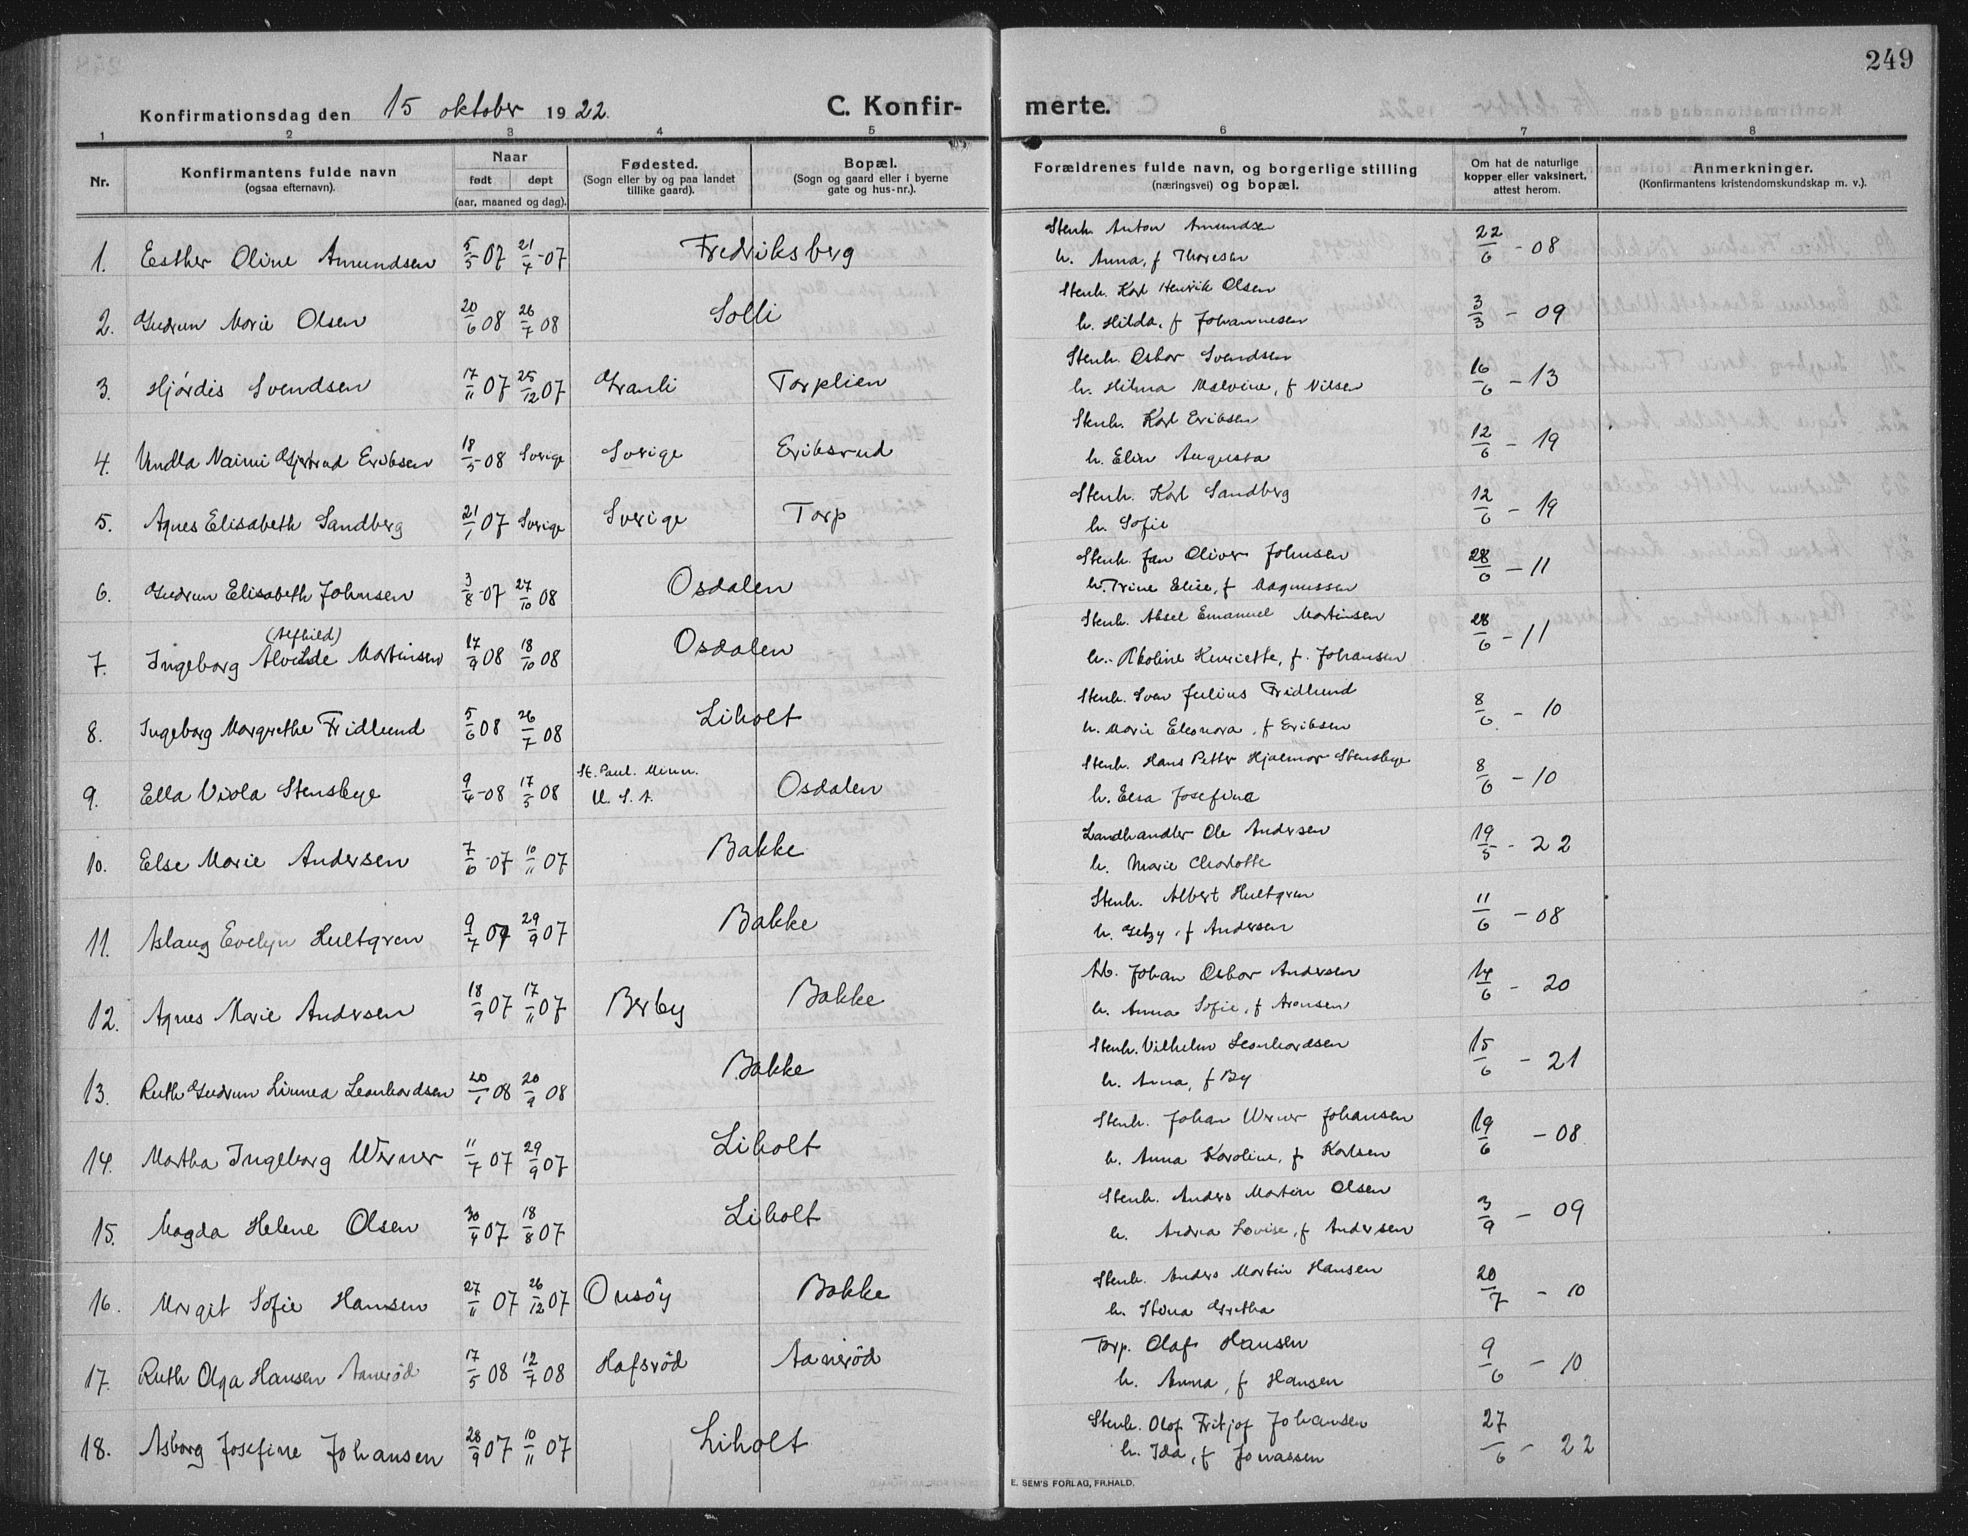 249
Konfirmationsdag den 15 oktober 1922. C. Konfir- merte.
1 2 3 4 5 6 7 8
Nr. Konfirmantens fulde navn (ogsaa efternavn). Naar født døpt (aar, maaned og dag). Fødested. (Sogn eller by og paa landet tillike gaard). Bopæl. (Sogn og gaard eller i byerne gate og hus-nr.). Forældrenes fulde navn, og borgerlige stilling (næringsvei) og bopæl. Om hat de naturlige kopper eller vaksinert, attest herom. Anmerkninger. (Konfirmantens kristendomskundskap m. v.).
1. Esther Oline Amundsen 5/3 07 21/4-07 Fredriksberg Stenh. Anton Amundsen 22/6 - 08
h. Anna, f Thoresen
2. Gudrun Marie Olsen 20/6 08 26/7 08 Solli Stenh. Karl Henrik Olsen 3/3 - 09
h. Hilda, f Johannesen
3. Hjördis Svendsen 17/11 07 25/12 07 Granli Torplien Stenh. Oskar Svendsen 16/6 - 13
h. Hilma Malvine, f Nilsen
4. Naimi Gjertrud Eriksen 18/5-08 Sverige Sverige Eriksrud Stenh. Karl Eriksen 12/6 - 19
h. Elin Augusta
5. Agnes Elisabeth Sandberg 21/1 07 Sverige Sverige Torp Stenh. Karl Sandberg 12/6 - 19
h. Sofie
6. Gudrun Elisabeth Johnsen 3/8-07 27/10 08 Osdalen Stenh. Jan Oliver Johnsen 28/6 - 11
h. Trine Elise, f Magnussen
7. Ingeborg Alvilde (Alfhild) Martinsen 17/9 08 18/10 08 Osdalen Stenh. Aksel Emanuel Martinsen 28/6 - 11
h. Henriette, f. Johansen
8. Ingeborg Margrethe Fridlund 5/6 08 26/7 08 Liholt Stenh. Sven Julius Fridlund 8/6 - 10
h. Marie Eleonora, f Eriksen
9. Ella Viola Stensbye 9/4-08 17/5 08 St. Paul. Minn. U. S. A. Osdalen Stenh. Hans Petter Hjalmar Stensbye 8/6 - 10
h. Elsa Josefina
10. Else Marie Andersen 7/6-07 10/11 07 Bakke Landhandler Ole Andersen 19/5 - 22
h. Marie Charlotte
11. Aslaug Evelyn Hultgren 9/7 07 29/9 07 Bakke Stenh. Albert Hultgren 11/6 - 08
h. f Andersen
12. Agnes Marie Andersen 18/9 07 17/11 07 Berby Bakke Arb. Johan Oskar Andersen 14/6 - 20
h. Anna Sofie, f Aronsen
13. Ruth Gudrun Linnea Leonhardsen 20/1 08 20/9 08 Bakke Stenh. Vilhelm Leonhardsen 15/6 - 21
h. Anna, f By
14. Martha Ingeborg Werner 11/7 07 29/9 07 Liholt Stenh. Johan Werner Johansen 19/6 - 08
h. Anna Karoline, f Karlsen
15. Magda Helene Olsen 30/4 07 18/8 07 Liholt Stenh. Anders Martin Olsen 3/9 - 09
h. Andrea Lovise, f Andersen
16. Margit Sofie Hansen 27/11 07 26/12 07 Onsöy Bakke Stenh. Anders Martin Hansen 20/7 - 10
h. Stina Gretha
17. Ruth Olga Hansen Aanerød 17/5 08 12/7 08 Hafsrød Aanerød Torp. Olaf Hansen 9/6 - 10
h. Anna, f Hansen
18. Asborg Josefine Johansen 28/9 07 10/11 07 Liholt Stenh. Olof Fritjof Johansen 27/6 - 22
h. Ida, f Jonassen
E. SEM'S FORLAG, FR.HALD.